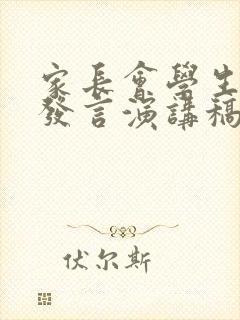 家長會學生
發言演講稿
伏尔斯